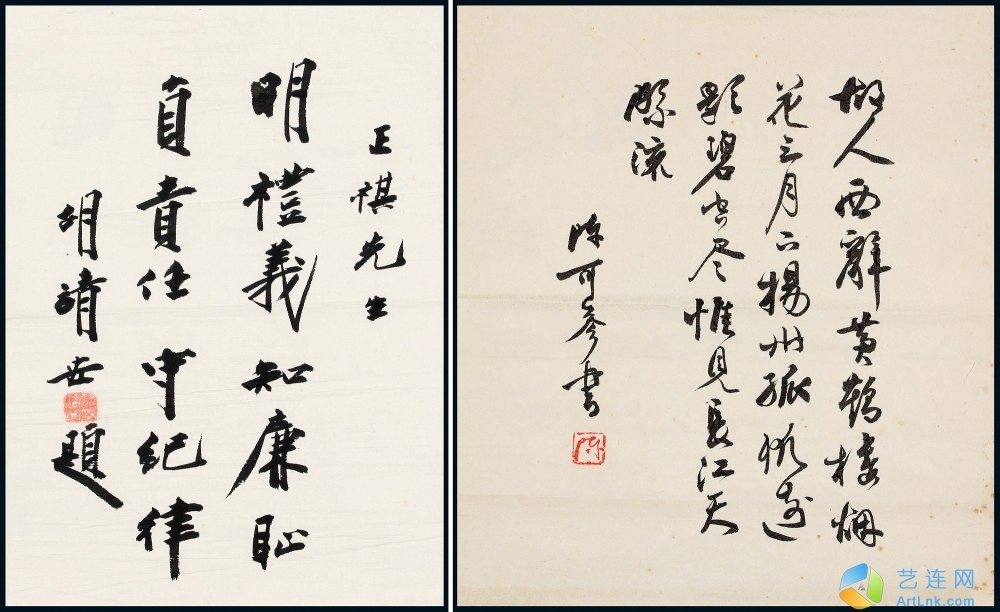 正祺先生
明禮義知廉耻
負責任守紀律
胡靖安題
故人西辭黄鶴樓烟
花三月下揚州孤帆遠
影碧空尽惟見長江天
際流
陳可書
艺连网
ArtLnk.com